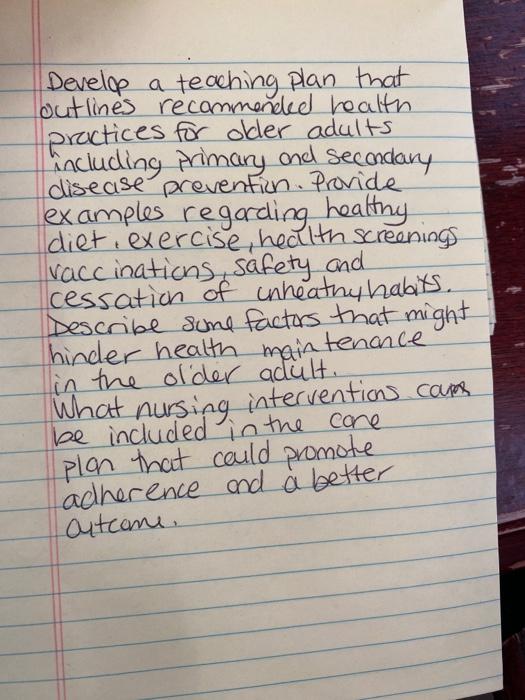 Develop a teaching plan that
outlines recommended health
practices for older adults
including primary and secondary
disease prevention. Provide
examples regarding healthy
diet, exercise, health screenings
vaccinations, safety and
cessation of unheathy habits.
Describe some factors that might
hinder health maintenance
in the older adult.
What nursing interventions can
be included in the care
plan that could promote
adherence and a better
outcome.